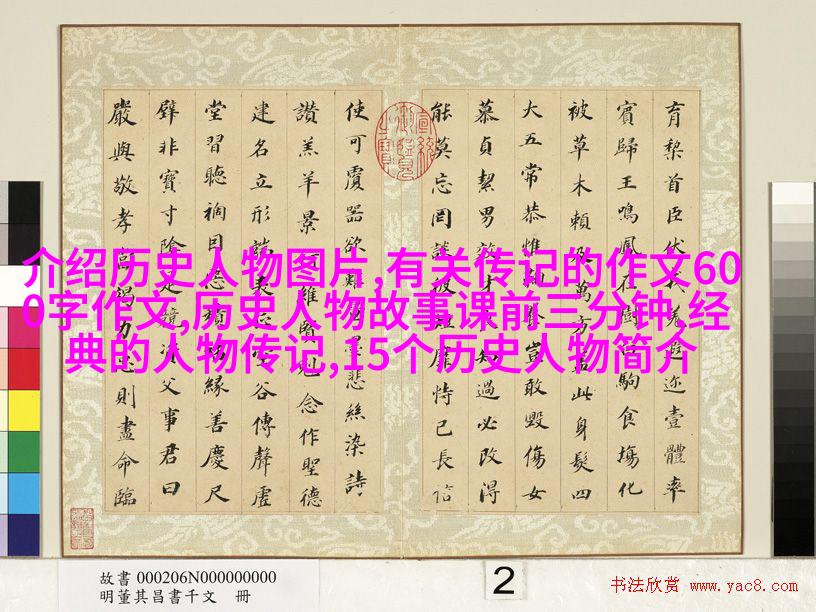 育黎首臣伏戎羌遐迩壹體率
賓歸王鳴鳳在樹白駒食場化
被草木賴及萬方蓋此身髮四
大五常恭惟鞠養豈敢毀傷女
慕貞絜男效才良知過必改得
能莫忘罔談彼短靡恃己長信
使可覆器欲難量墨悲絲染詩
讚羔羊景行維賢剋念作聖德
建名立形端表正空谷傳聲虛
堂習聽禍因惡積福緣善慶尺
璧非寶寸陰是競資父事君曰
嚴與敬孝當竭力忠則盡命臨
介绍历史人物图片,有关传记的作文60
0字作文,历史人物故事课前三分钟,经
典的人物传记,15个历史人物简介
故書 000206N000000000
明董其昌書千文 冊
2
书法欣赏 www.yac8.com